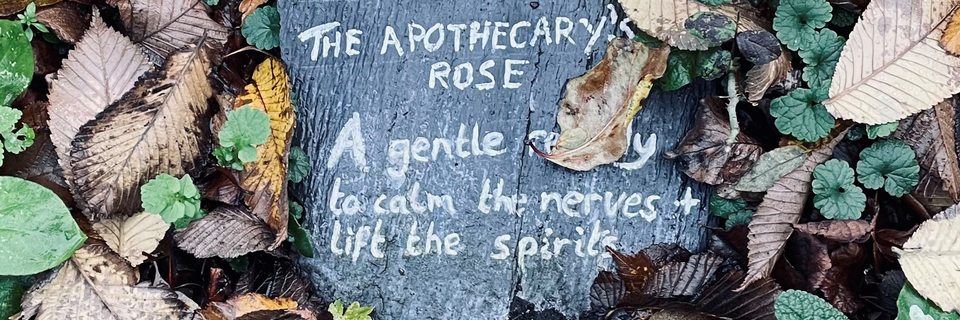 THE APOTHECARY's
ROSE
A gentle
to calm the nerves +
lift the spirits